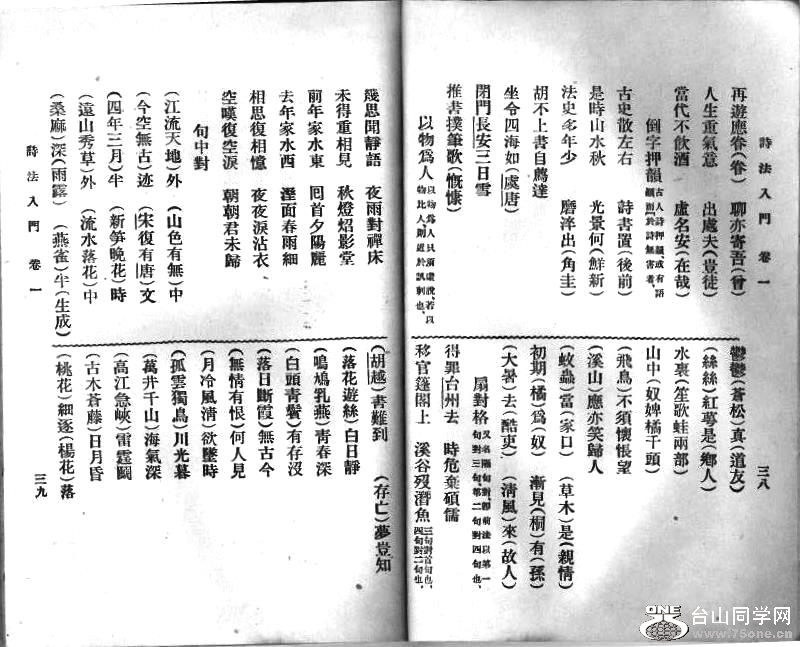 詩法入門 卷一 三八
再遊應眷(眷) 聊亦寄吾(曾)
人生重氣意 出處夫(豈徒)
當代不飲酒 虛名安(在哉)
倒字押韻 古人詩押韻、或有語顛而於詩無害者、
古史散左右 詩書置(後前)
是時山水秋 光景何(鮮新)
法史多年少 磨淬出(角圭)
胡不上書自薦達
坐令四海如(虞唐)
閉門長安三日雪
推書撲筆歌(慨慷)
以物為人 以物為人只須虛說、若以物比人則近於諷刺也、
鬱鬱(蒼松)真(道友)
(絲絲)紅萼是(鄉人)
水裏(笙歌蛙兩部)
山中(奴婢橘千頭)
(飛鳥)不須懷悵望
(溪山)應亦笑歸人
(蚊蟲)當(家口) (草木)是(親情)
初期(橘)為(奴) 漸見(桐)有(孫)
(大暑)去(酷吏) (清風)來(故人)
扇對格 又名隔句對、即前法以第一句對三句、第二句對四句也、
得罪台州去 時危棄碩儒
移官蓬閣上 溪谷歿潛魚 三句對首句也、四句對二句也、
幾思聞靜語 夜雨對禪床
未得重相見 秋燈焰影堂
前年家水東 囘首夕陽麗
去年家水西 溼面春雨細
相思復相憶 夜夜淚沾衣
空嘆復空淚 朝朝君未歸
句中對
(江流天地)外 (山色有無)中
(今空無古)迹 (宋復有唐)文
(四年三月)半 (新笋晚花)時
(遠山秀草)外 (流水落花)中
(桑麻)深(雨露) (燕雀)半(生成)
(胡越)書難到 (存亡)夢豈知
(落花遊絲)白日靜
(鳴鳩乳燕)青春深
(白頭青鬢)有存沒
(落日斷霞)無古今
(無情有恨)何人見
(月冷風清)欲墜時
(孤雲獨鳥)川光暮
(萬井千山)海氣深
(高江急峽)雷霆鬭
(古木蒼藤)日月昏
(桃花)細逐(楊花)落
詩法入門 卷一 三九
台山同学网
www.75one.cn
ONE